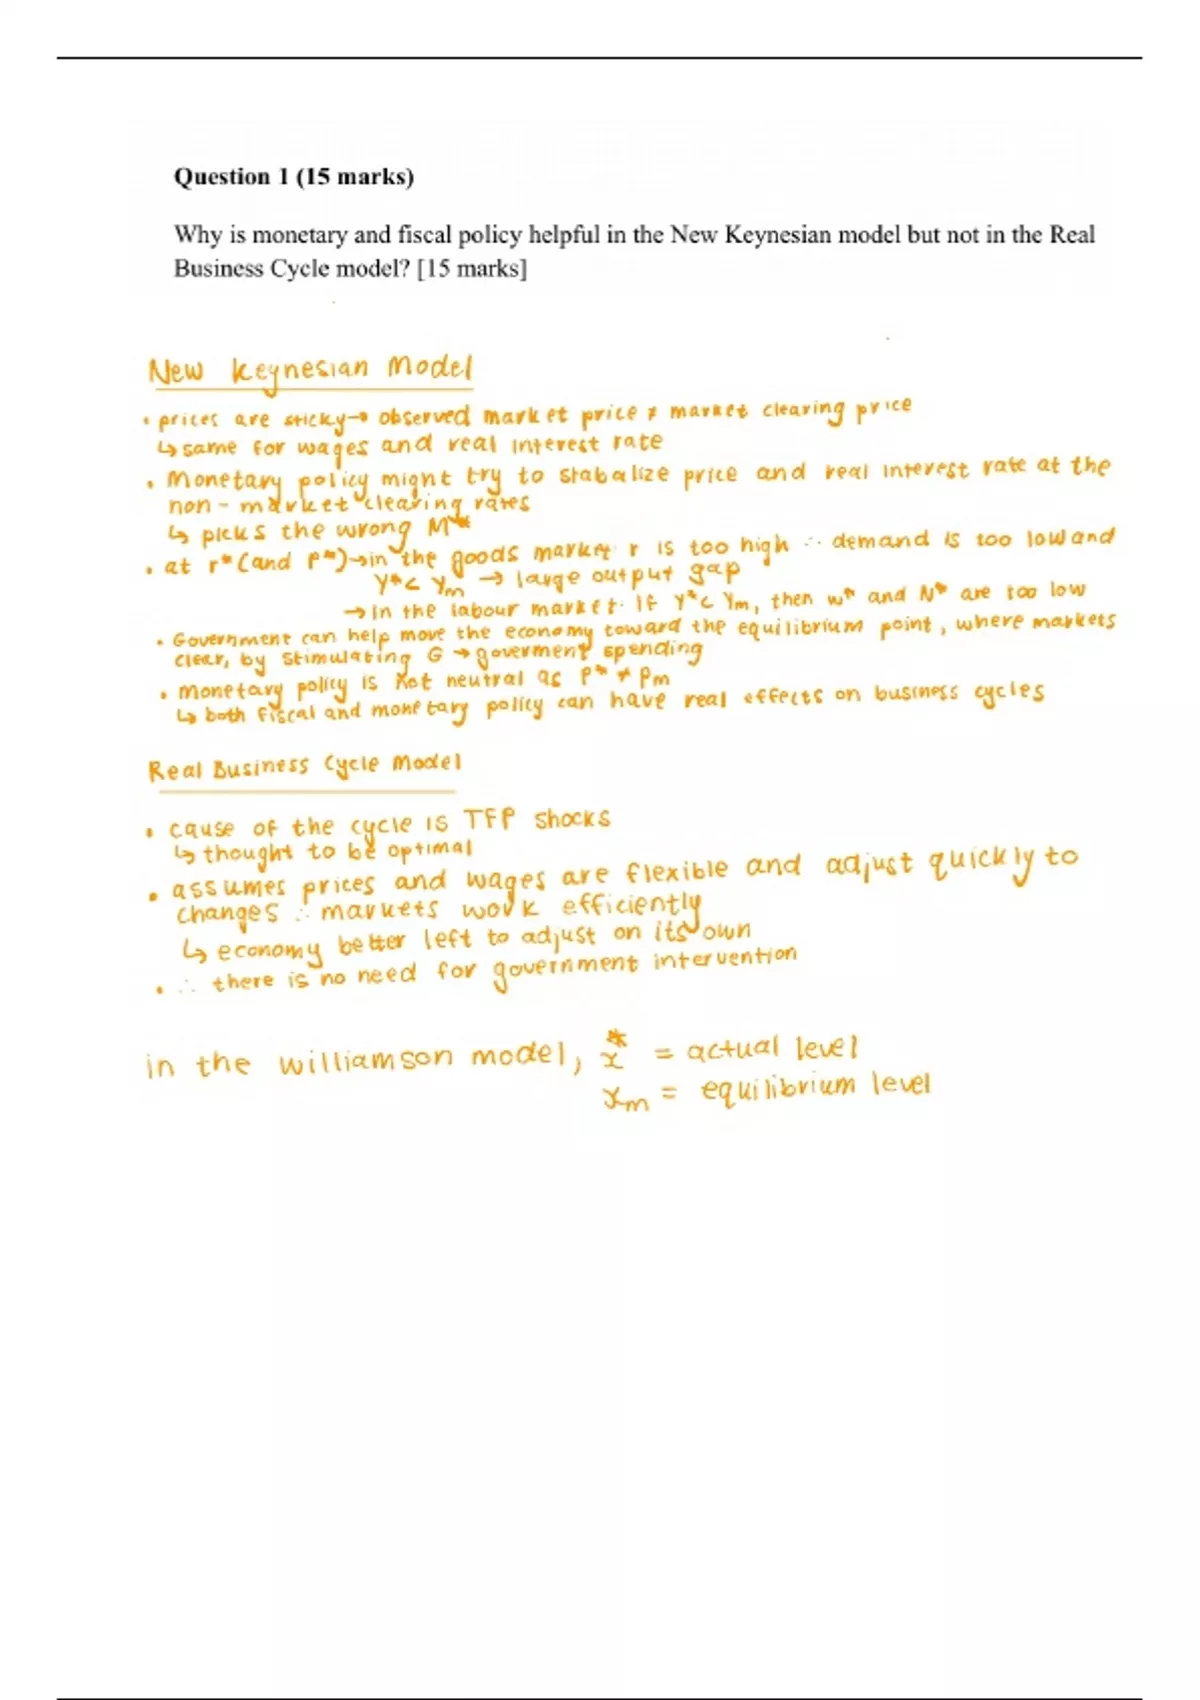 Question 1 (15 marks)
Why is monetary and fiscal policy helpful in the New Keynesian model but not in the Real
Business Cycle model? [15 marks]
New Keynesian Model
• prices are sticky→ observed market price ≠ market clearing price
↳ same for wages and real interest rate
• Monetary policy might try to stabalize price and real interest rate at the
non-market clearing rates
↳ picks the wrong M*
• at r* (and P*)→in the goods market r is too high ∴ demand is too low and
Y*< Ym → large output gap
→ In the labour market. If Y*< Ym, then w* and N* are too low
• Government can help move the economy toward the equilibrium point, where markets
clear, by stimulating G → goverment spending
• monetary policy is not neutral as P* ≠ Pm
↳ both fiscal and monetary policy can have real effects on business cycles
Real Business Cycle Model
• cause of the cycle is TFP shocks
↳ thought to be optimal
• assumes prices and wages are flexible and adjust quickly to
changes ∴ markets work efficiently
↳ economy better left to adjust on its own
• ∴ there is no need for government intervention
in the williamson model, x* = actual level
xm = equilibrium level